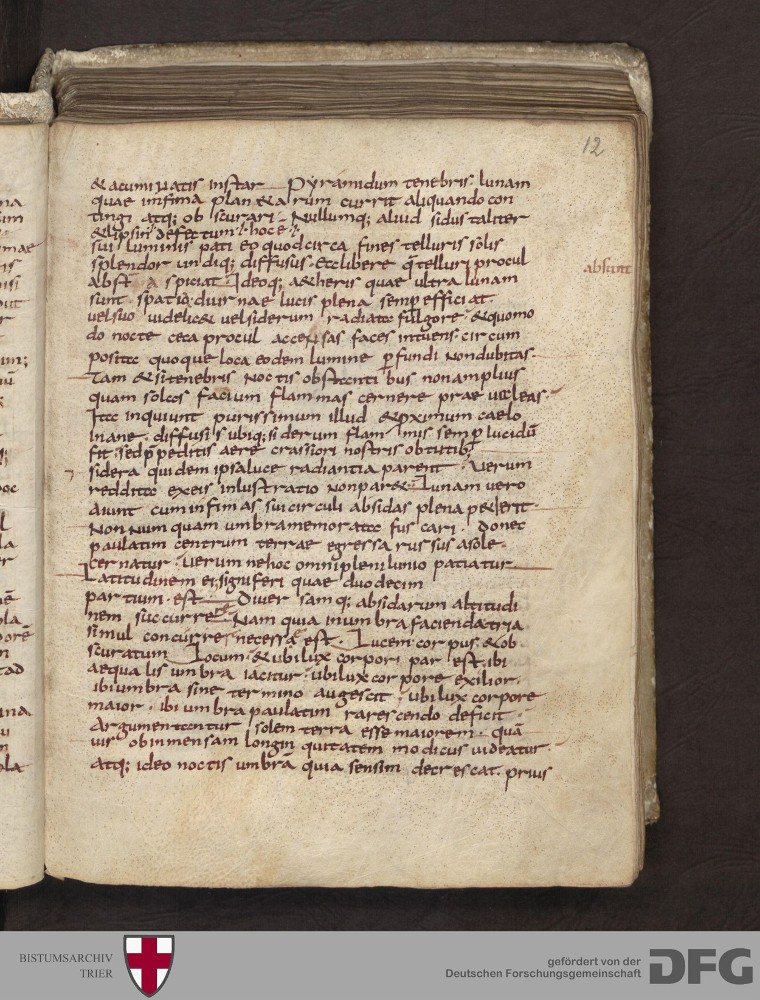 12
& acuminatis instar pyramidum tenebris. lunam
quae infima planetarum currit aliquando con
tingi atq; ob scurari. Nullumq; aliud sidus taliter
&lipsin defectum. hoc e.
sui luminis pati eo quod circa fines telluris solis
splendor undiq; diffusus. &libere q̄ telluri procul
absunt
abst a spiciat. Ideoq; aetheris quae ultra lunam
sunt. spatia diurnae lucis plena semp efficiat.
vel suo videlic& vel siderum radiata fulgore. & quomo
do nocte ceca procul accensas faces intuens. circum
posita quoque loca eodem lumine p̄fundi non dubitas.
Tam &si tenebris noctis obstanti bus non amplius
quam solas facium flammas cernere prae valeas.
Ita inquiunt purissimum illud & proximum caelo
inane. diffusis ubiq; siderum flammis semp lucidū
fit. sed p̄peditis aere crassiori nostris obtutib;
sidera quidem ipsa luce radiantia parent. Verum
reddita ex eis inlustratio non par&. Lunam vero
aiunt cum infimas sui circuli absidas plena petierit.
Non numquam umbra memorata fuscari. donec
paulatim centrum terrae egressa rursus a sole
cernatur. Verum ne hoc omni plenilunio patiatur
Latitudinem ei signiferi quae duodecim
partium. est. Diversamq; absidarum altitudi
nem succurrere. Nam quia in umbra facienda tria
simul concurrere necesse est. Lucem. corpus. & ob
scuratum locum. & ubi lux corpori par est. ibi
aequalis umbra iacitur. ubi lux corpore exilior.
ibi umbra sine termino augescit. ubi lux corpore
maior. ibi umbra paulatim rarescendo deficit.
Argumentantur solem terra esse maiorem. quā
vis ob inmensam longinquitatem modicus videatur.
atq; ideo noctis umbrā quia sensim decrescat. prius
BISTUMSARCHIV
TRIER
gefördert von der
Deutschen Forschungsgemeinschaft
DFG